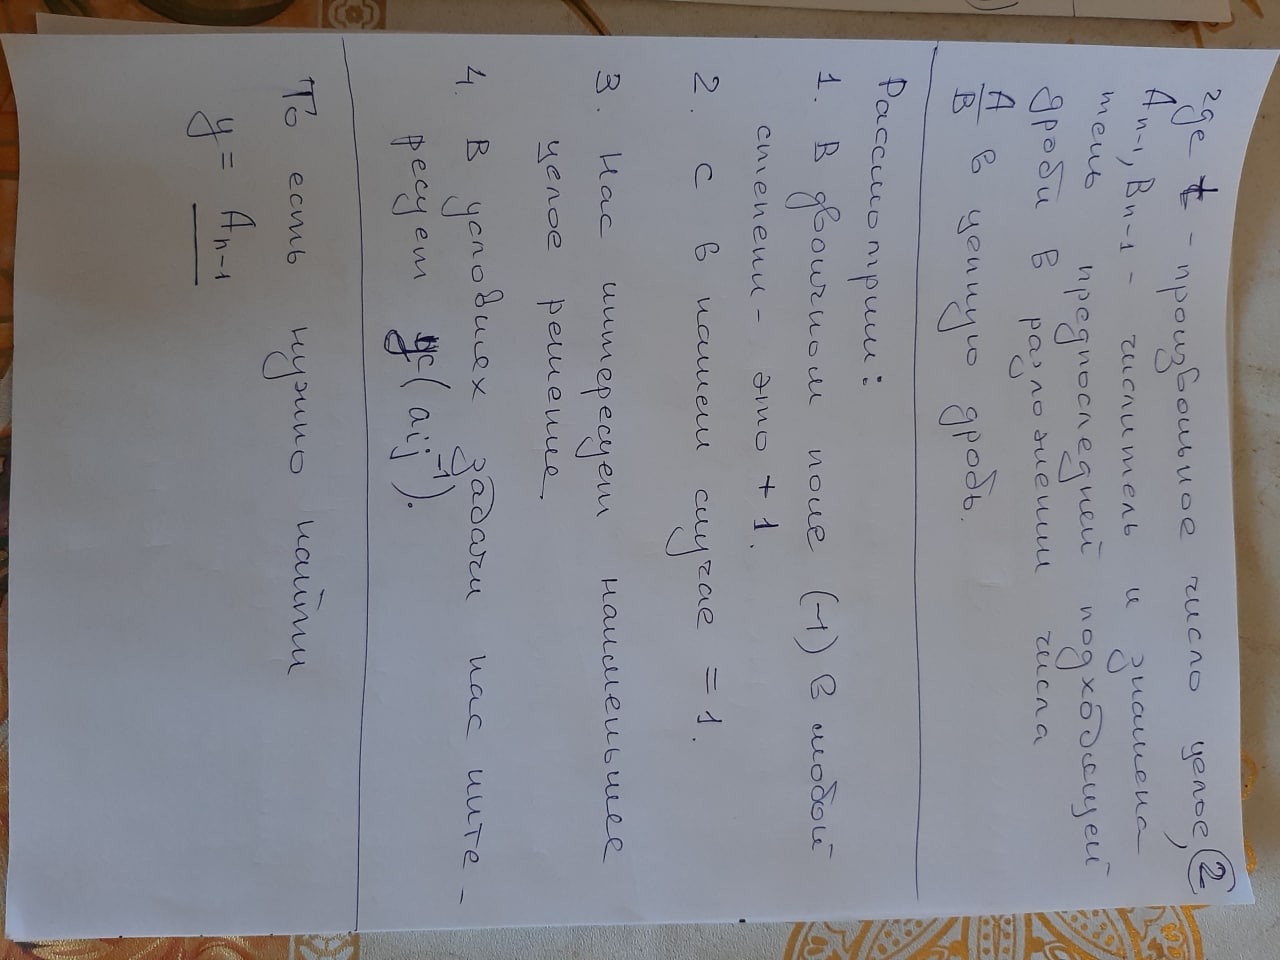 где t - произвольное число целое, 2
An-1, Bn-1 - числитель и знамена
тель предпоследней подходящей
дроби в разложении числа
A/B в цепную дробь.
Рассмотрим:
1. В двоичном поле (-1) в любой
степени - это +1.
2. c в нашем случае = 1.
3. Нас интересует наименьшее
целое решение.
4. В условиях задачи нас инте-
ресует (aij⁻¹).
То есть нужно найти
y = An-1